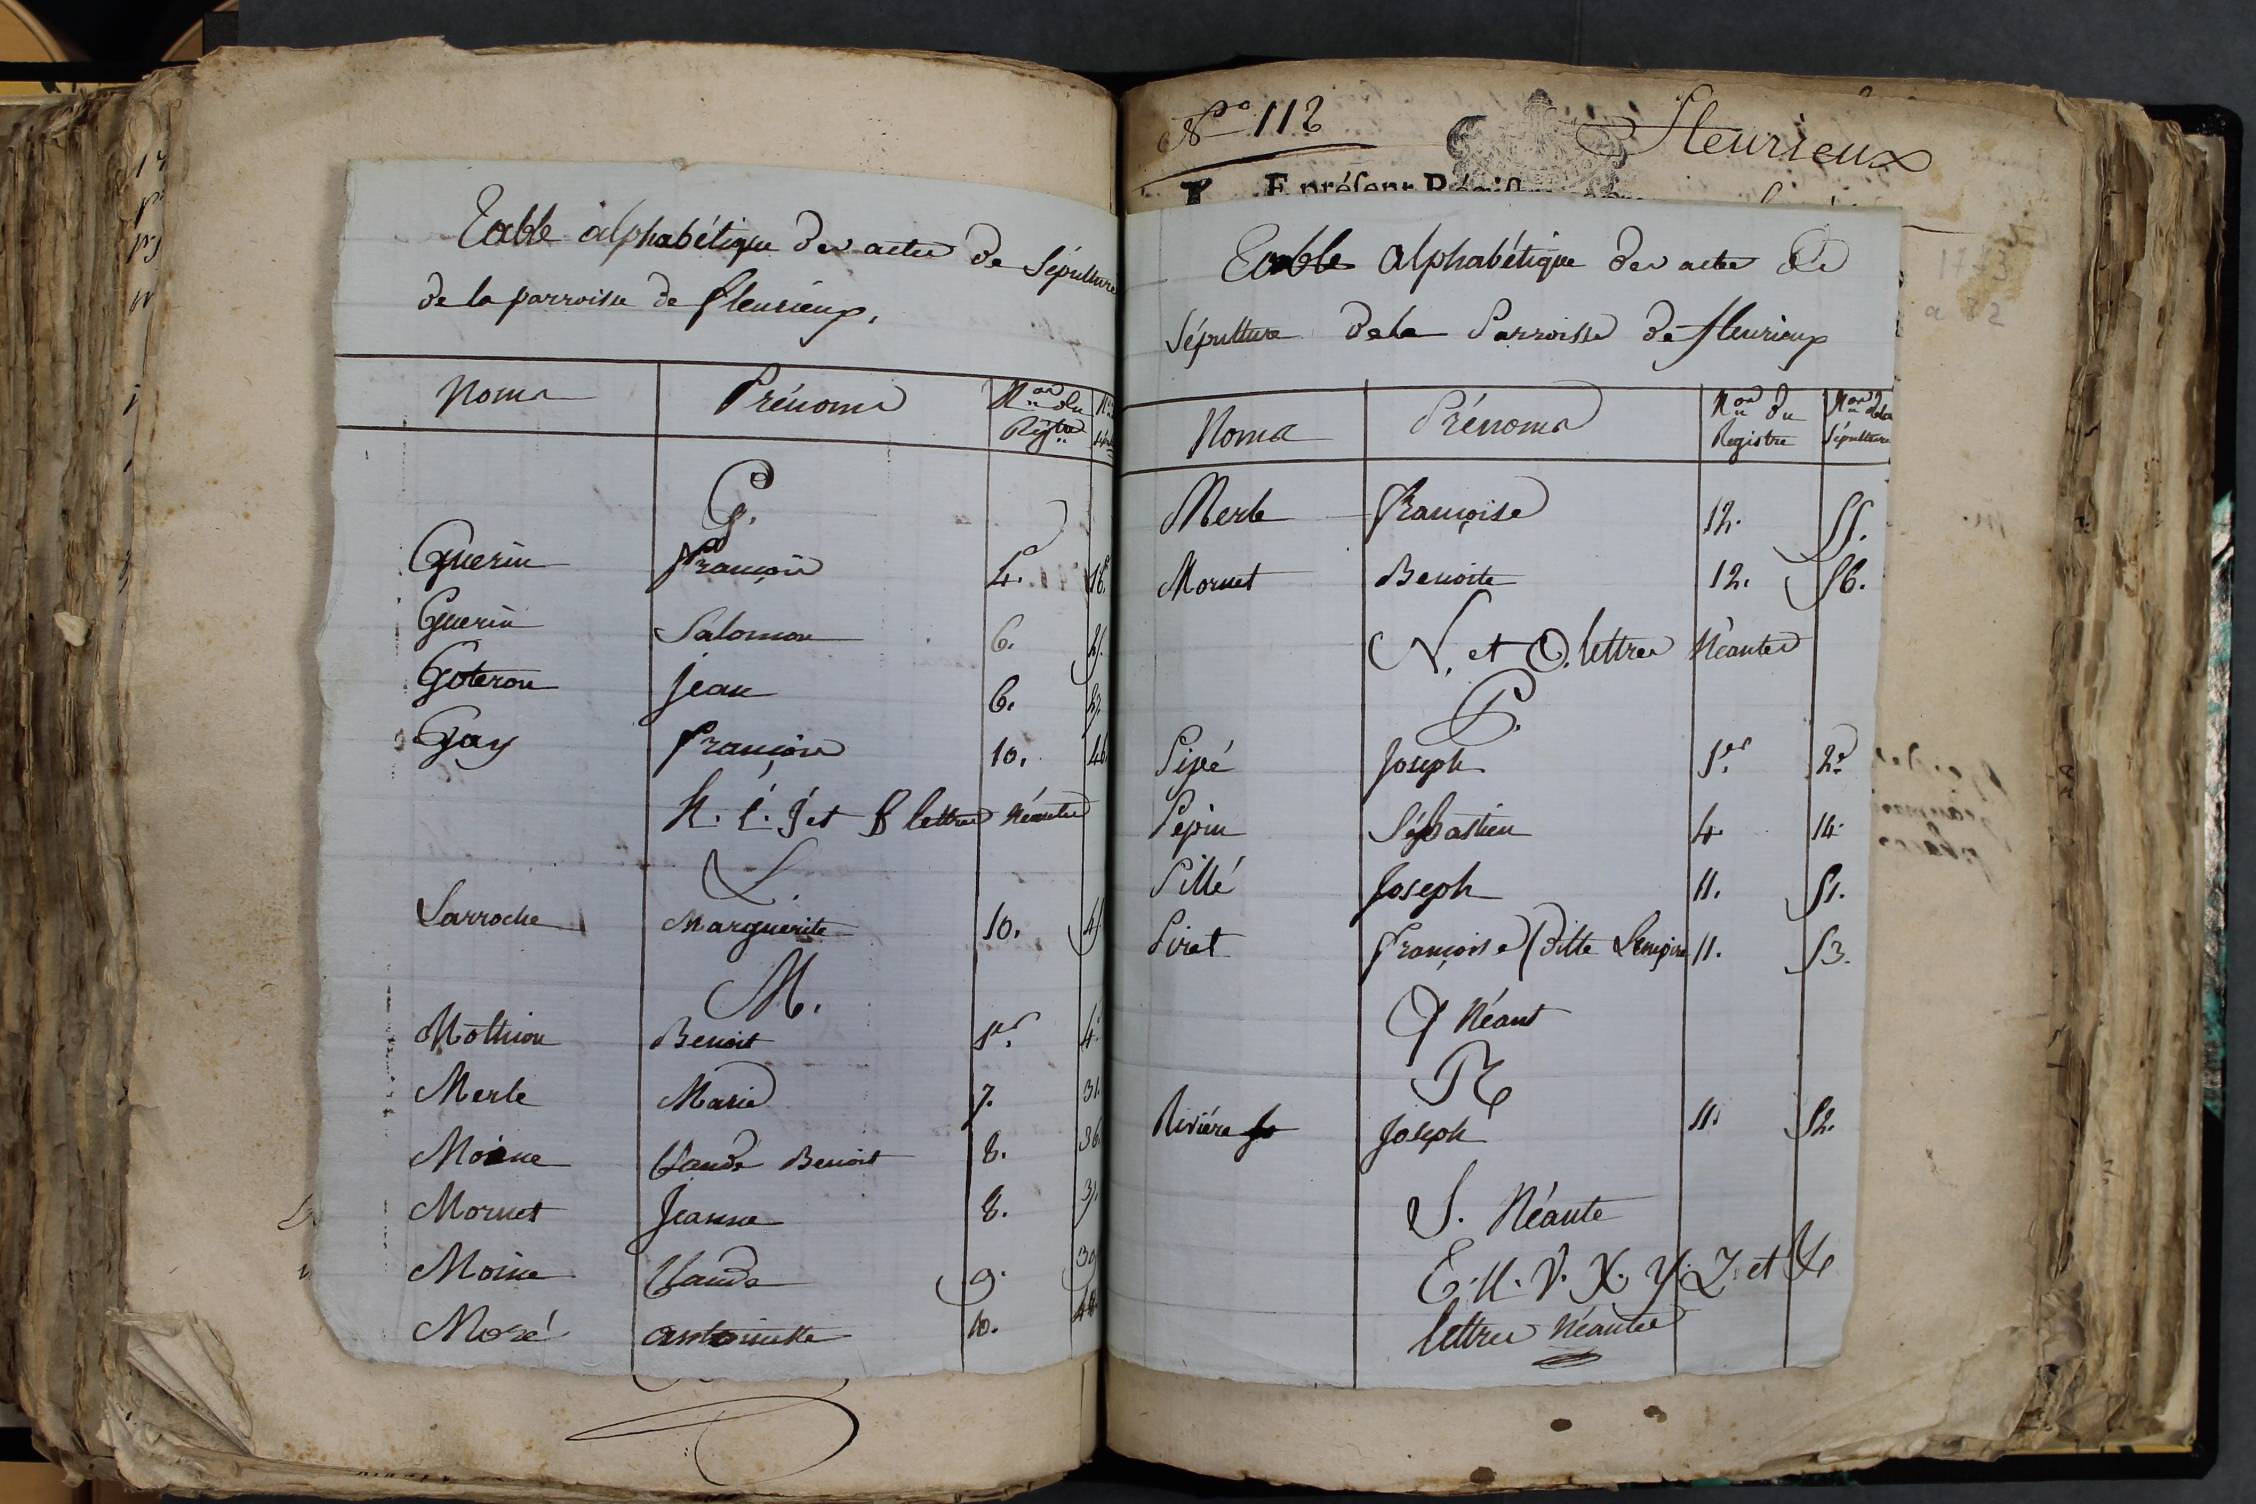 Table alphabétique des actes de Sépulture
de la parroisse de fleurieux.
Noms Prénoms Nos du Regtre
G.
Guerin François 4. 18.
Guerin Salomon 6. 25.
Goteron Jean 6. 27.
Gay François 10. 46.
h. i. j et k lettres Néantes
L.
Larroche Marguerite 10. 45.
M.
Mothion Benoit 1er. 4.
Merle Marie 7. 31.
Moine Claude Benoit 8. 36.
Mornet Jeanne 8. 37.
Moine Claude 9. 39
Moré antoinette 10. 48.
No 112 fleurieux
E présent Régis
Table Alphabétique des actes De
Sépulture de la Parroisse de fleurieux
Noms Prénoms Nos du Registre Nos de la Sépulture
Merle françoise 12. 55.
Mornet Benoite 12. 56.
N. et O. lettres Néantes
P.
Pipé Joseph 1er. 2e
Pepin Sébastien 4. 14.
Pillé Joseph 11. 51.
Piret françoise (ditte Lempire 11. 53.
Q Néant
R
Rivière Joseph 11. 52.
S. Néante
T. U. V. X. Y. Z. et &
lettres Néantes